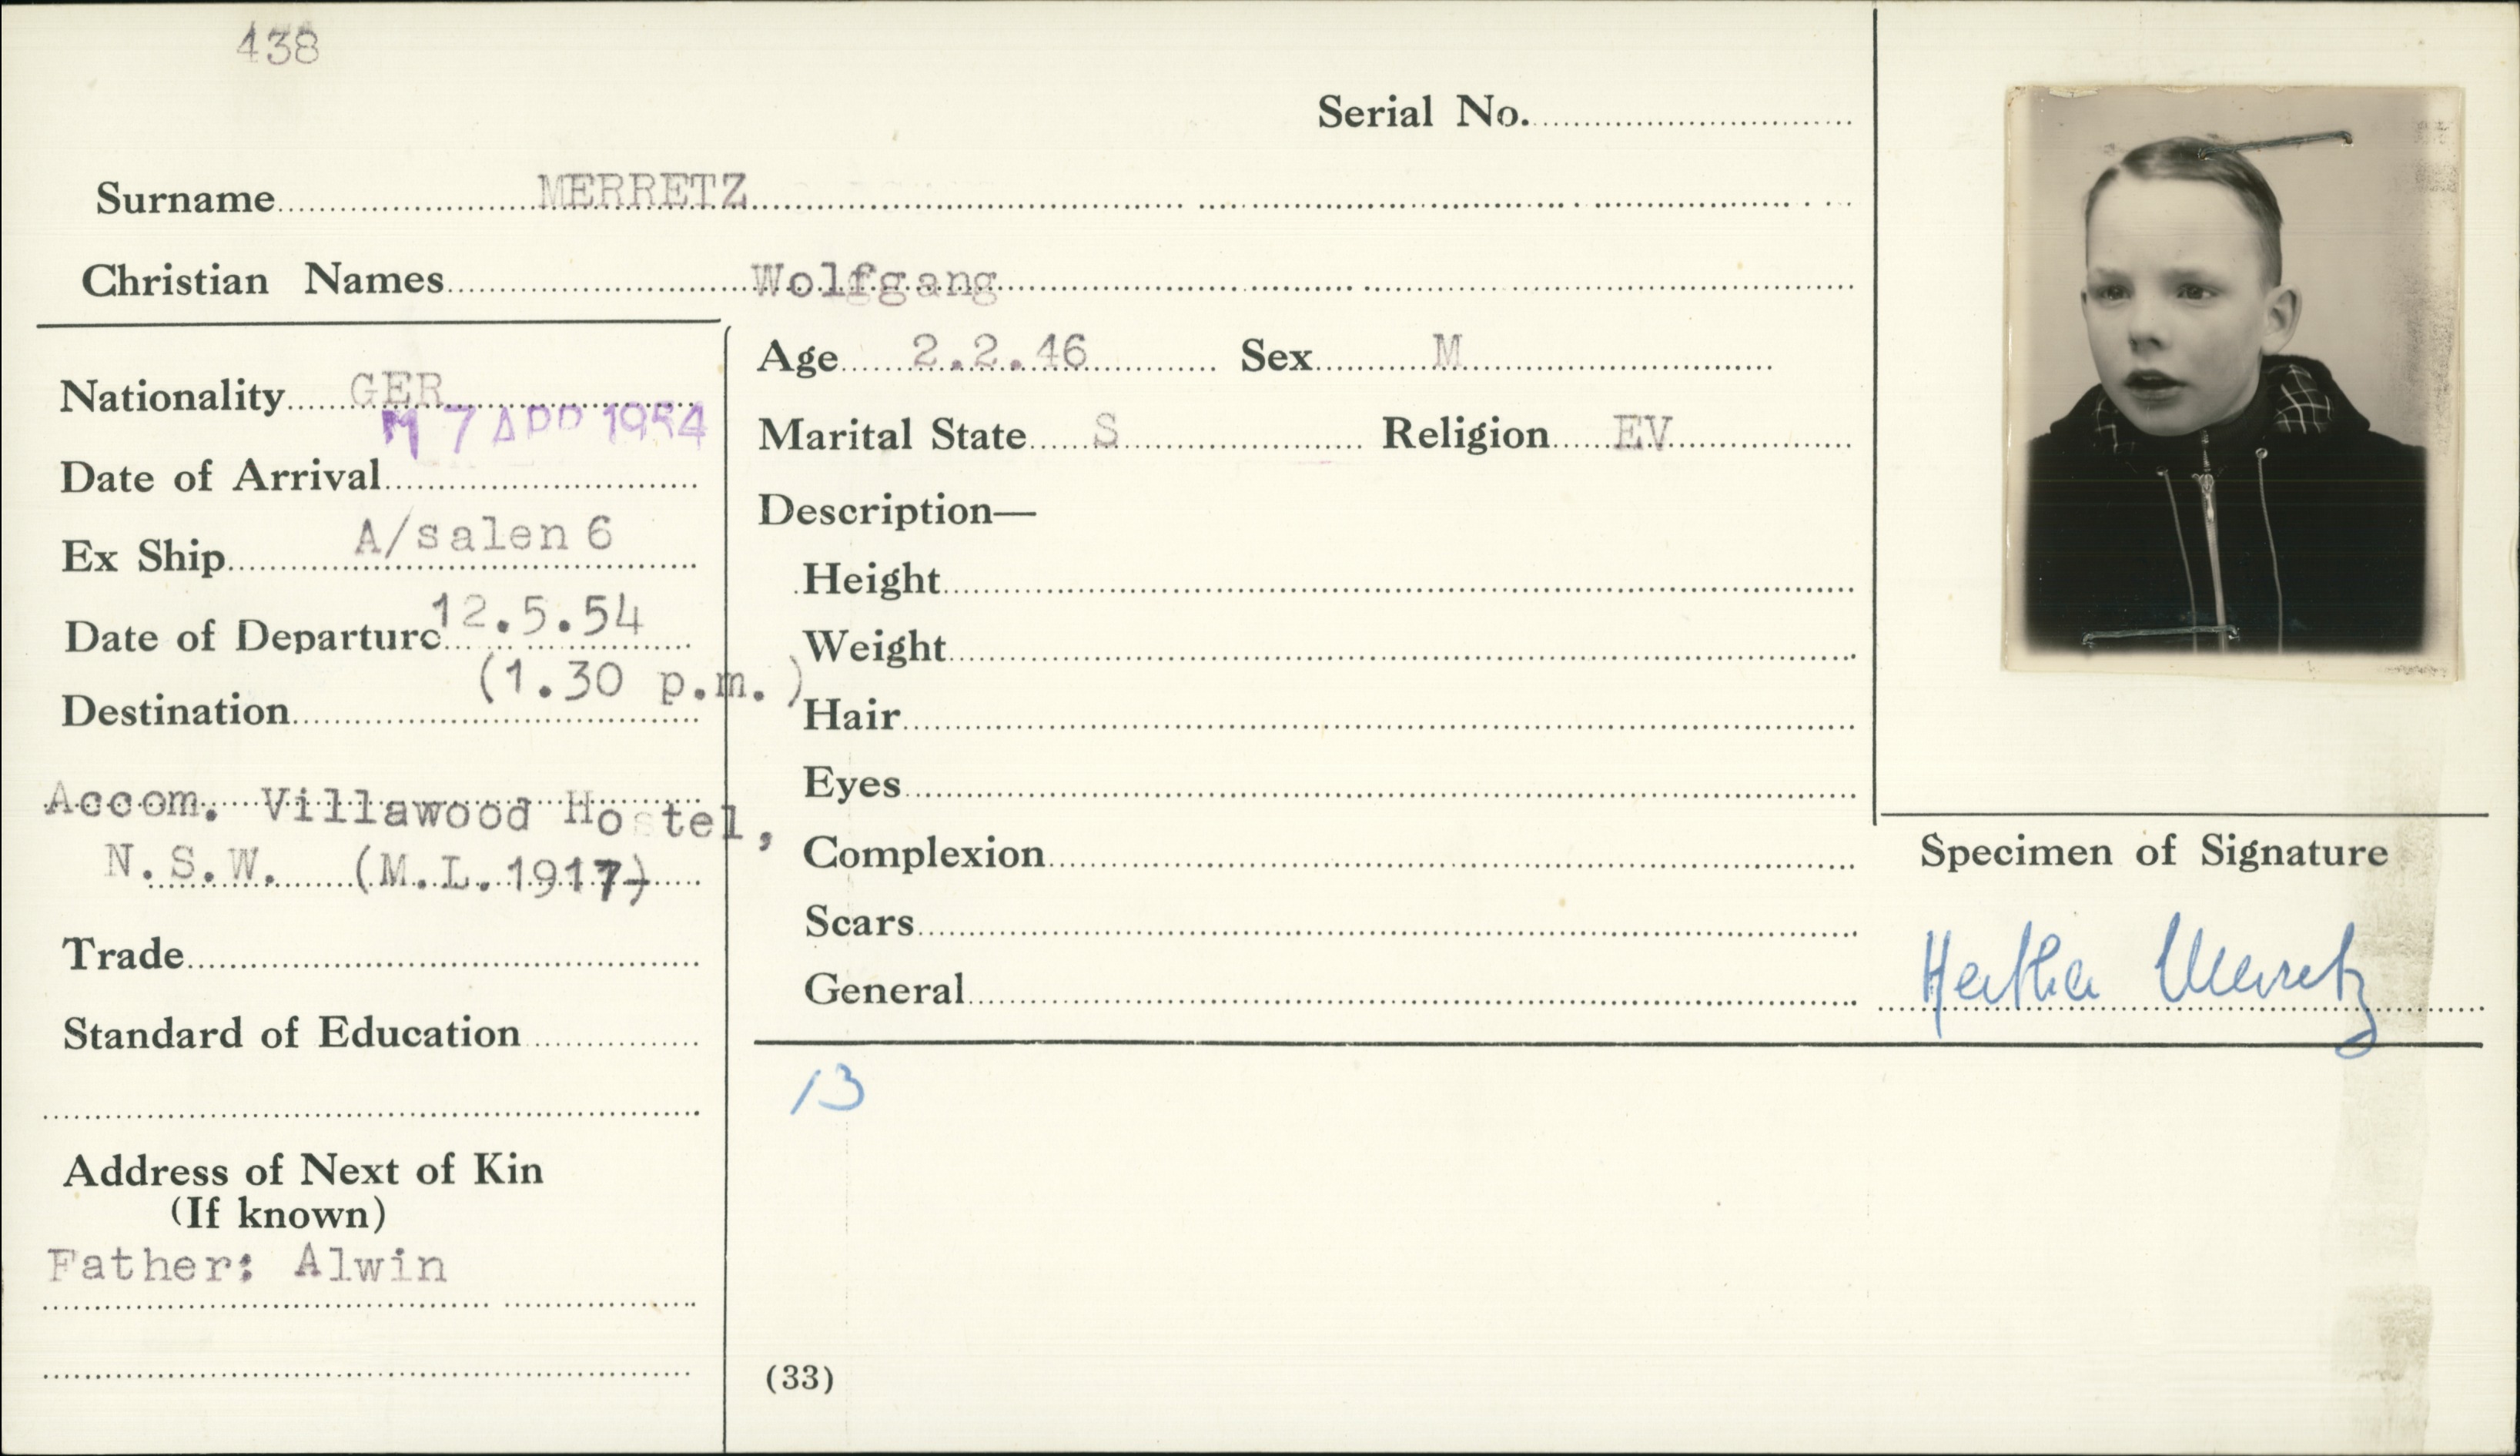 438
Serial No.
Surname MERRETZ
Christian Names Wolfgang
Nationality GER
M 7 APR 1954
Date of Arrival
Ex Ship A/salen 6
Date of Departure 12.5.54
(1.30 p.m.)
Destination
Accom. Villawood Hostel,
N.S.W. (M.L.1917)
Trade
Standard of Education
Address of Next of Kin
(If known)
Father: Alwin
Age 2.2.46 Sex M
Marital State S Religion EV
Description—
Height
Weight
Hair
Eyes
Complexion
Scars
General
13
(33)
Specimen of Signature
Hertha Merretz